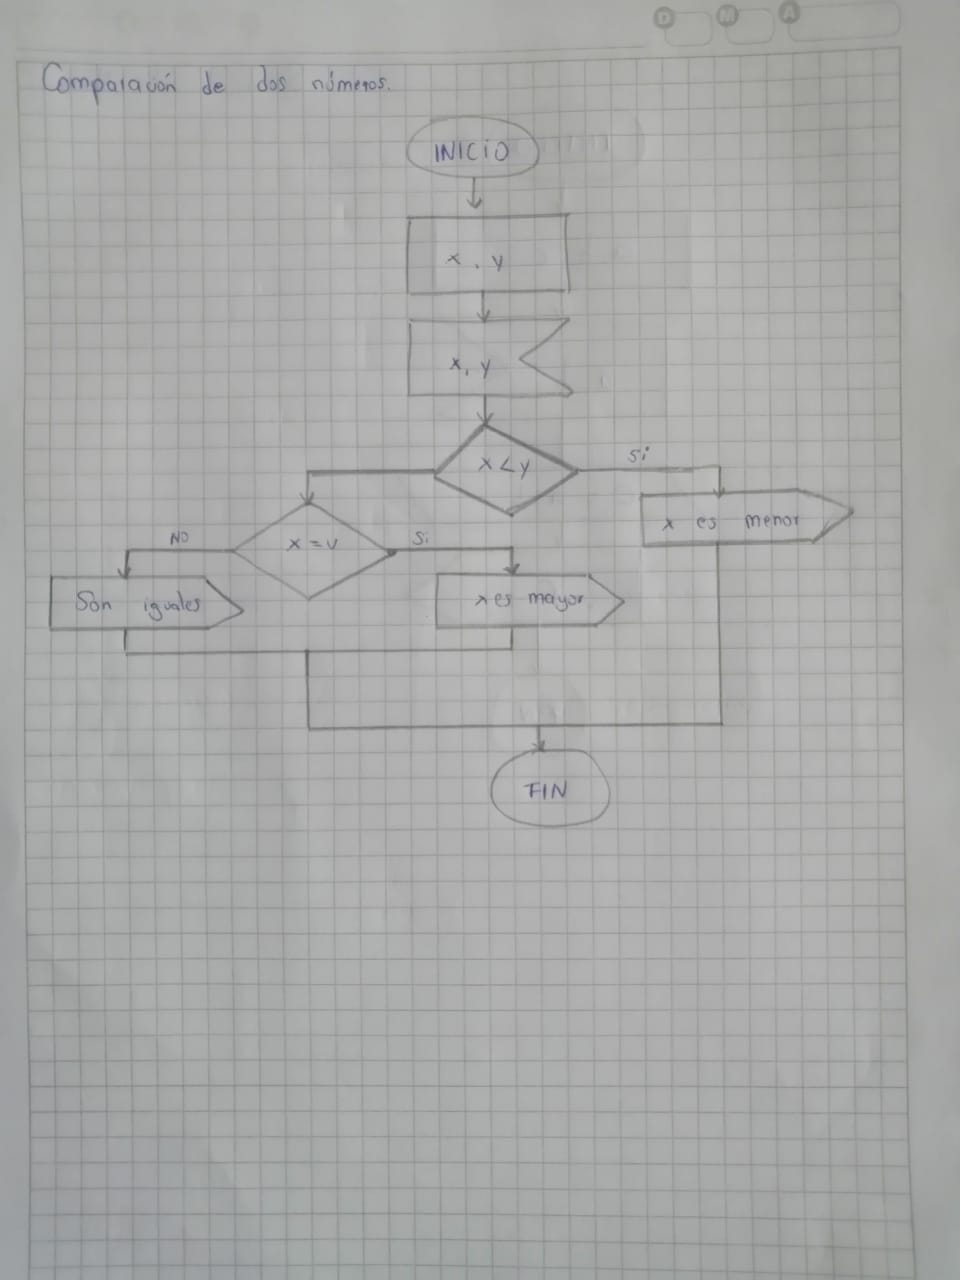 D M A
Comparación de dos números.
INICIO
x, y
x, y
x < y
Si
x es menor
x = v
NO
Si
Son iguales
x es mayor
FIN